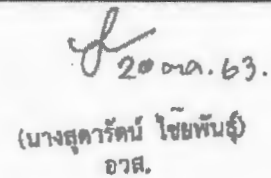 20 ตค. 63.
(นางสุดารัตน์ ไชยพันธุ์)
อวส.